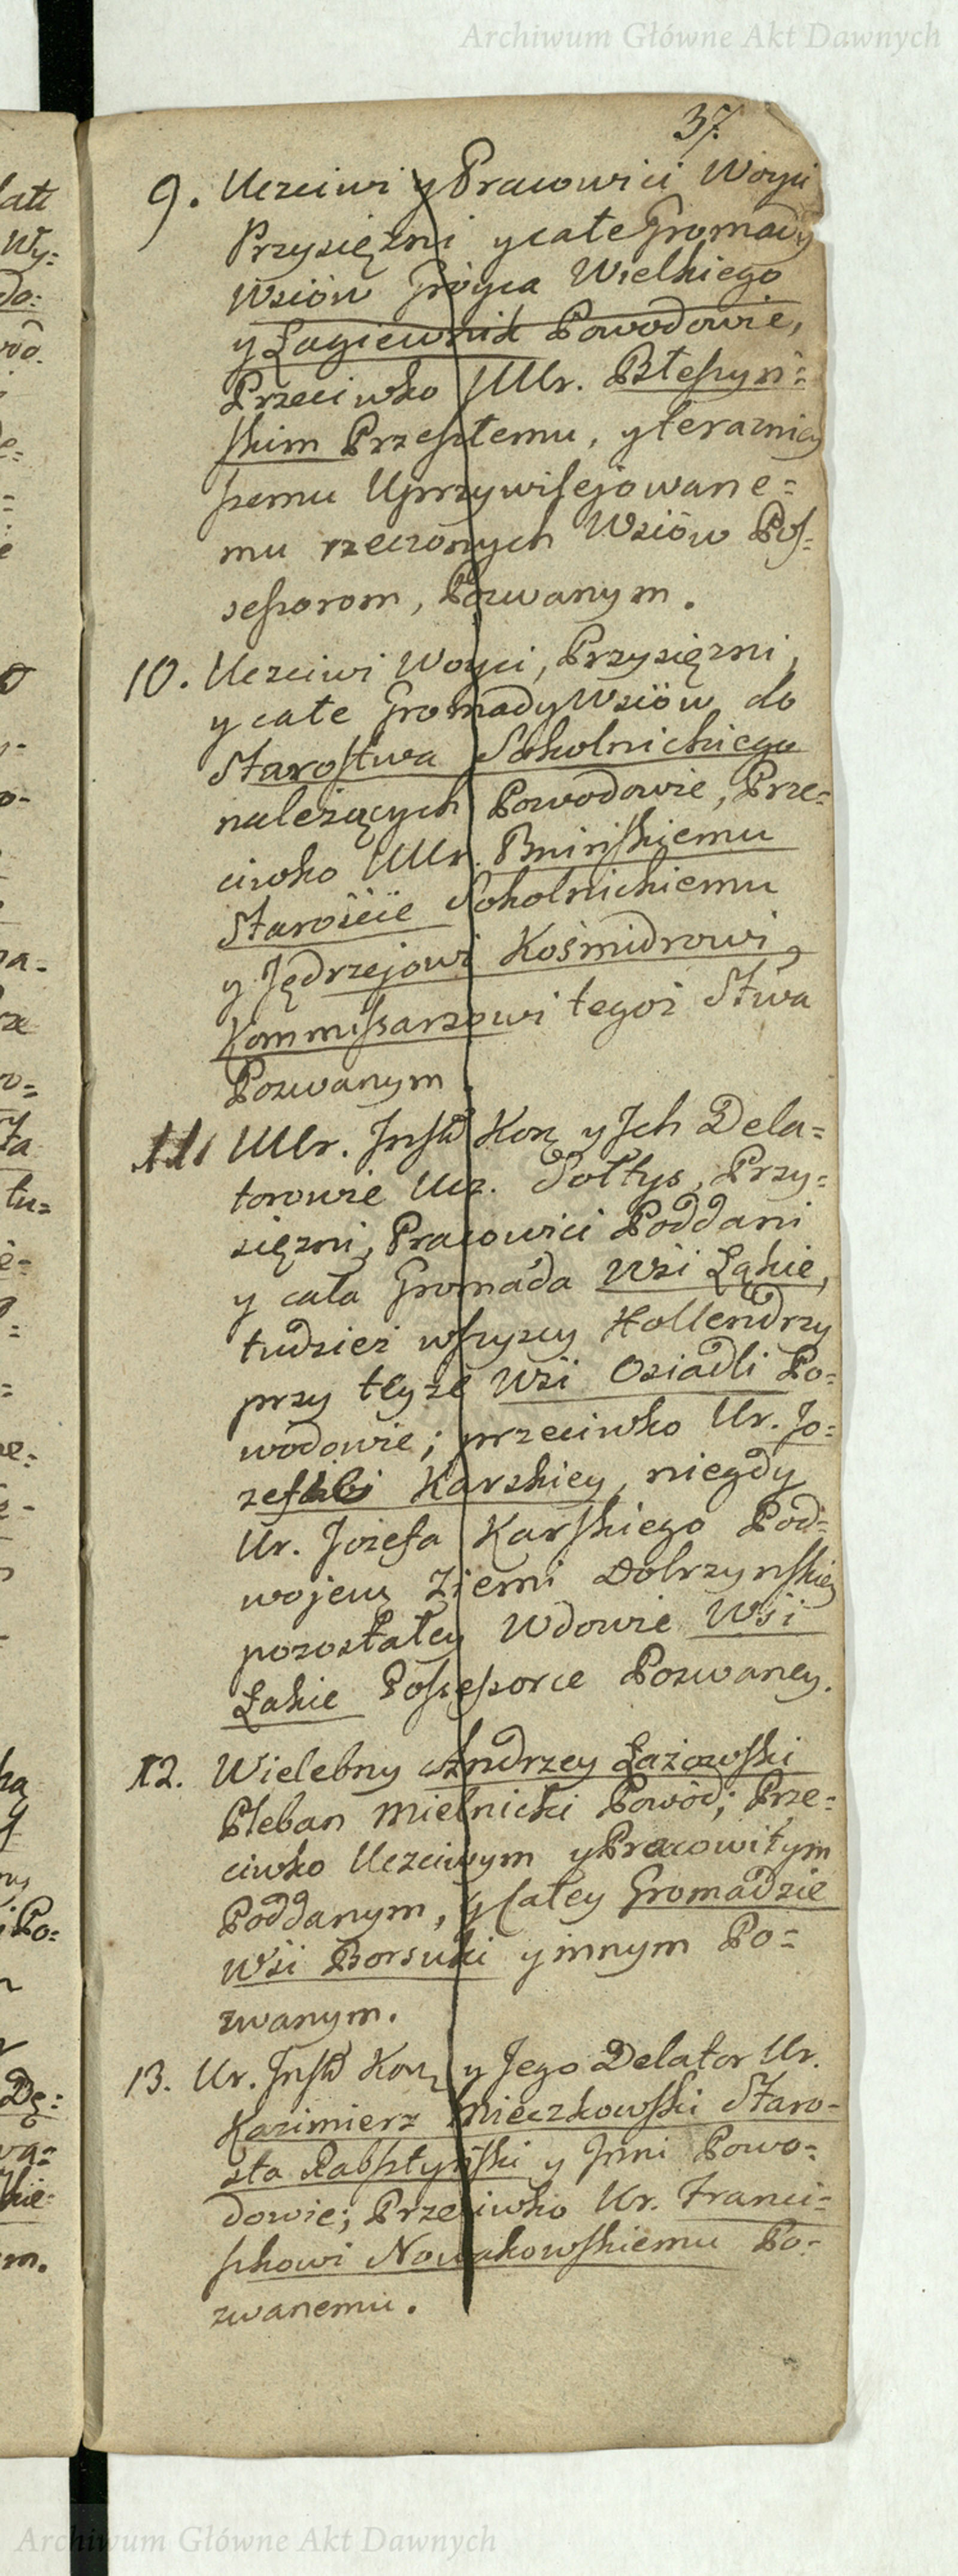 Archiwum Główne Akt Dawnych
37.
9. Uczciwi y Pracowici Woyci
Przysięzni y całe Gromady
Wsiów Gróyca Wielkiego
y Łagiewnik Powodowie,
Przeciwko UUr. Błeszyń=
skim Przeszłemu, y teraźniey
szemu Uprzywilejowane=
mu rzeczonych Wsiów Pos=
sessorom, Pozwanym.
10. Uczciwi Woyci, Przysięzni,
y całe Gromady Wsiów do
Starostwa Sokolnickiego
należących Powodowie, Prze=
ciwko UUr. Bnińskiemu
Staroście Sokolnickiemu
y Jędrzejowi Kośmidrowi,
Kommissarzowi tegoż Stwa
Pozwanym.
11. UUr. Inst Kor y Ich Dela=
torowie Ucz. Sołtys, Przy=
sięzni, Pracowici Poddani
y cała Gromada Wsi Łąkie,
tudzież wszyscy Hollendrzy
przy teyze Wsi Osiadli Po=
wodowie; przeciwko Ur. Jo=
zefbi Karskiey, niegdy
Ur. Jozefa Karskiego Pod=
wojew Ziemi Dobrzynskiey
pozostałey Wdowie Wsi
Łakie Possessorce Pozwaney.
12. Wielebny Andrzey Łazowski
Pleban Mielnicki Powód; Prze=
ciwko Uczciwym y Pracowitym
Poddanym, y Całey Gromadzie
Wsi Borsuki y innym Po=
zwanym.
13. Ur. Inst Kor y Jego Delator Ur.
Kazimierz Mieczkowski Staro=
sta Rabsztyński y Inni Powo=
dowie; Przeciwko Ur. Franci=
szkowi Nowakowskiemu Po=
zwanemu.
Archiwum Główne Akt Dawnych